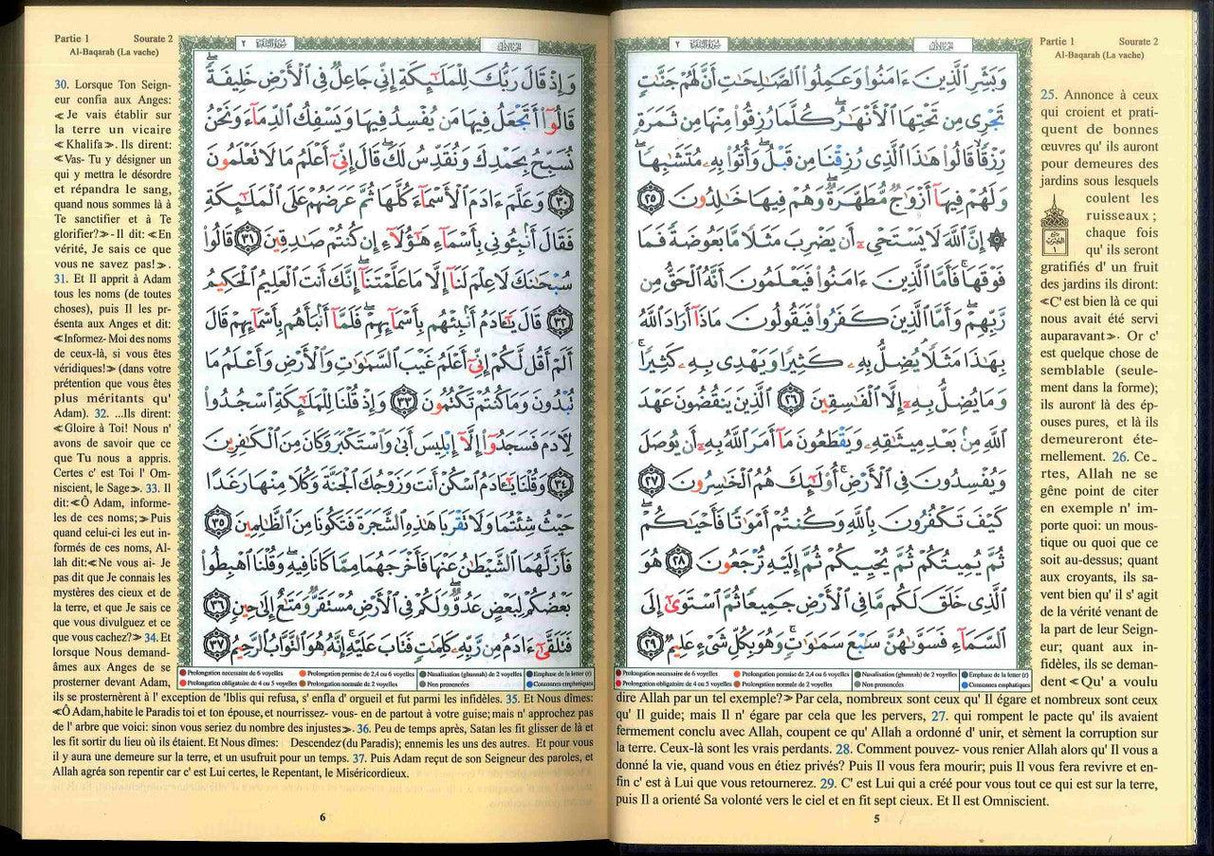 Partie 1 Sourate 2
Al-Baqarah (La vache)
وَبَشِّرِ ٱلَّذِينَ ءَامَنُوا۟ وَعَمِلُوا۟ ٱلصَّـٰلِحَـٰتِ أَنَّ لَهُمْ جَنَّـٰتٍ
تَجْرِى مِن تَحْتِهَا ٱلْأَنْهَـٰرُ ۖ كُلَّمَا رُزِقُوا۟ مِنْهَا مِن ثَمَرَةٍ
رِّزْقًا ۙ قَالُوا۟ هَـٰذَا ٱلَّذِى رُزِقْنَا مِن قَبْلُ ۖ وَأُتُوا۟ بِهِۦ مُتَشَـٰبِهًا ۖ
وَلَهُمْ فِيهَآ أَزْوَٰجٌ مُّطَهَّرَةٌ ۖ وَهُمْ فِيهَا خَـٰلِدُونَ ٢٥
۞ إِنَّ ٱللَّهَ لَا يَسْتَحْىِۦٓ أَن يَضْرِبَ مَثَلًا مَّا بَعُوضَةً فَمَا
فَوْقَهَا ۚ فَأَمَّا ٱلَّذِينَ ءَامَنُوا۟ فَيَعْلَمُونَ أَنَّهُ ٱلْحَقُّ مِن
رَّبِّهِمْ ۖ وَأَمَّا ٱلَّذِينَ كَفَرُوا۟ فَيَقُولُونَ مَاذَآ أَرَادَ ٱللَّهُ
بِهَـٰذَا مَثَلًا ۘ يُضِلُّ بِهِۦ كَثِيرًا وَيَهْدِى بِهِۦ كَثِيرًا ۚ
وَمَا يُضِلُّ بِهِۦٓ إِلَّا ٱلْفَـٰسِقِينَ ٢٦ ٱلَّذِينَ يَنقُضُونَ عَهْدَ
ٱللَّهِ مِنۢ بَعْدِ مِيثَـٰقِهِۦ وَيَقْطَعُونَ مَآ أَمَرَ ٱللَّهُ بِهِۦٓ أَن يُوصَلَ
وَيُفْسِدُونَ فِى ٱلْأَرْضِ ۚ أُو۟لَـٰٓئِكَ هُمُ ٱلْخَـٰسِرُونَ ٢٧
كَيْفَ تَكْفُرُونَ بِٱللَّهِ وَكُنتُمْ أَمْوَٰتًا فَأَحْيَـٰكُمْ ۖ
ثُمَّ يُمِيتُكُمْ ثُمَّ يُحْيِيكُمْ ثُمَّ إِلَيْهِ تُرْجَعُونَ ٢٨ هُوَ
ٱلَّذِى خَلَقَ لَكُم مَّا فِى ٱلْأَرْضِ جَمِيعًا ثُمَّ ٱسْتَوَىٰٓ إِلَى
ٱلسَّمَآءِ فَسَوَّىٰهُنَّ سَبْعَ سَمَـٰوَٰتٍ ۚ وَهُوَ بِكُلِّ شَىْءٍ عَلِيمٌ ٢٩
Prolongation necessaire de 6 voyelles Prolongation permise de 2,4 ou 6 voyelles Nasalisation (ghunnah) de 2 voyelles Emphase de la lettre (r)
Prolongation obligatoire de 4 ou 5 voyelles Prolongation normale de 2 voyelles Non prononcées Consonnes emphatiques
25. Annonce à ceux
qui croient et prati-
quent de bonnes
œuvres qu' ils auront
pour demeures des
jardins sous lesquels
coulent les
ruisseaux ;
chaque fois
qu' ils seront
gratifiés d' un fruit
des jardins ils diront:
≪C' est bien là ce qui
nous avait été servi
auparavant≫. Or c'
est quelque chose de
semblable (seule-
ment dans la forme);
ils auront là des ép-
ouses pures, et là ils
demeureront éte-
rnellement. 26. Ce-
rtes, Allah ne se
gêne point de citer
en exemple n' im-
porte quoi: un mous-
tique ou quoi que ce
soit au-dessus; quant
aux croyants, ils sa-
vent bien qu' il s' agit
de la vérité venant de
la part de leur Seign-
eur; quant aux in-
fidèles, ils se deman-
dent ≪Qu' a voulu
dire Allah par un tel exemple?≫ Par cela, nombreux sont ceux qu' Il égare et nombreux sont ceux
qu' Il guide; mais Il n' égare par cela que les pervers, 27. qui rompent le pacte qu' ils avaient
fermement conclu avec Allah, coupent ce qu' Allah a ordonné d' unir, et sèment la corruption sur
la terre. Ceux-là sont les vrais perdants. 28. Comment pouvez- vous renier Allah alors qu' Il vous a
donné la vie, quand vous en étiez privés? Puis Il vous fera mourir; puis Il vous fera revivre et en-
fin c' est à Lui que vous retournerez. 29. C' est Lui qui a créé pour vous tout ce qui est sur la terre,
puis Il a orienté Sa volonté vers le ciel et en fit sept cieux. Et Il est Omniscient.
5
Partie 1 Sourate 2
Al-Baqarah (La vache)
وَإِذْ قَالَ رَبُّكَ لِلْمَلَـٰٓئِكَةِ إِنِّى جَاعِلٌ فِى ٱلْأَرْضِ خَلِيفَةً ۖ
قَالُوٓا۟ أَتَجْعَلُ فِيهَا مَن يُفْسِدُ فِيهَا وَيَسْفِكُ ٱلدِّمَآءَ وَنَحْنُ
نُسَبِّحُ بِحَمْدِكَ وَنُقَدِّسُ لَكَ ۖ قَالَ إِنِّىٓ أَعْلَمُ مَا لَا تَعْلَمُونَ
٣٠ وَعَلَّمَ ءَادَمَ ٱلْأَسْمَآءَ كُلَّهَا ثُمَّ عَرَضَهُمْ عَلَى ٱلْمَلَـٰٓئِكَةِ
فَقَالَ أَنۢبِـُٔونِى بِأَسْمَآءِ هَـٰٓؤُلَآءِ إِن كُنتُمْ صَـٰدِقِينَ ٣١ قَالُوا۟
سُبْحَـٰنَكَ لَا عِلْمَ لَنَآ إِلَّا مَا عَلَّمْتَنَآ ۖ إِنَّكَ أَنتَ ٱلْعَلِيمُ ٱلْحَكِيمُ
٣٢ قَالَ يَـٰٓـَٔادَمُ أَنۢبِئْهُم بِأَسْمَآئِهِمْ ۖ فَلَمَّآ أَنۢبَأَهُم بِأَسْمَآئِهِمْ قَالَ
أَلَمْ أَقُل لَّكُمْ إِنِّىٓ أَعْلَمُ غَيْبَ ٱلسَّمَـٰوَٰتِ وَٱلْأَرْضِ وَأَعْلَمُ مَا
تُبْدُونَ وَمَا كُنتُمْ تَكْتُمُونَ ٣٣ وَإِذْ قُلْنَا لِلْمَلَـٰٓئِكَةِ ٱسْجُدُوا۟
لِـَٔادَمَ فَسَجَدُوٓا۟ إِلَّآ إِبْلِيسَ أَبَىٰ وَٱسْتَكْبَرَ وَكَانَ مِنَ ٱلْكَـٰفِرِينَ
٣٤ وَقُلْنَا يَـٰٓـَٔادَمُ ٱسْكُنْ أَنتَ وَزَوْجُكَ ٱلْجَنَّةَ وَكُلَا مِنْهَا رَغَدًا
حَيْثُ شِئْتُمَا وَلَا تَقْرَبَا هَـٰذِهِ ٱلشَّجَرَةَ فَتَكُونَا مِنَ ٱلظَّـٰلِمِينَ ٣٥
فَأَزَلَّهُمَا ٱلشَّيْطَـٰنُ عَنْهَا فَأَخْرَجَهُمَا مِمَّا كَانَا فِيهِ ۖ وَقُلْنَا ٱهْبِطُوا۟
بَعْضُكُمْ لِبَعْضٍ عَدُوٌّ ۖ وَلَكُمْ فِى ٱلْأَرْضِ مُسْتَقَرٌّ وَمَتَـٰعٌ إِلَىٰ حِينٍ ٣٦
فَتَلَقَّىٰٓ ءَادَمُ مِن رَّبِّهِۦ كَلِمَـٰتٍ فَتَابَ عَلَيْهِ ۚ إِنَّهُۥ هُوَ ٱلتَّوَّابُ ٱلرَّحِيمُ ٣٧
Prolongation necessaire de 6 voyelles Prolongation permise de 2,4 ou 6 voyelles Nasalisation (ghunnah) de 2 voyelles Emphase de la lettre (r)
Prolongation obligatoire de 4 ou 5 voyelles Prolongation normale de 2 voyelles Non prononcées Consonnes emphatiques
30. Lorsque Ton Seign-
eur confia aux Anges:
≪Je vais établir sur
la terre un vicaire
≪Khalifa≫. Ils dirent:
≪Vas- Tu y désigner un
qui y mettra le désordre
et répandra le sang,
quand nous sommes là à
Te sanctifier et à Te
glorifier?≫- Il dit: ≪En
vérité, Je sais ce que
vous ne savez pas!≫.
31. Et Il apprit à Adam
tous les noms (de toutes
choses), puis Il les pr-
ésenta aux Anges et dit:
≪Informez- Moi des noms
de ceux-là, si vous êtes
véridiques!≫ (dans votre
prétention que vous êtes
plus méritants qu'
Adam). 32. ...Ils dirent:
≪Gloire à Toi! Nous n'
avons de savoir que ce
que Tu nous a appris.
Certes c' est Toi l' Om-
niscient, le Sage≫. 33. Il
dit:≪Ô Adam, informe-
les de ces noms;≫Puis
quand celui-ci les eut in-
formés de ces noms, Al-
lah dit:≪Ne vous ai- Je
pas dit que Je connais les
mystères des cieux et de
la terre, et que Je sais ce
que vous divulguez et ce
que vous cachez?≫ 34. Et
lorsque Nous demand-
âmes aux Anges de se
prosterner devant Adam,
ils se prosternèrent à l' exception de 'Iblis qui refusa, s' enfla d' orgueil et fut parmi les infidèles. 35. Et Nous dîmes:
≪Ô Adam,habite le Paradis toi et ton épouse,et nourrissez- vous- en de partout à votre guise;mais n' approchez pas
de l' arbre que voici: sinon vous seriez du nombre des injustes≫. 36. Peu de temps après, Satan les fit glisser de là et
les fit sortir du lieu où ils étaient. Et Nous dîmes: Descendez(du Paradis); ennemis les uns des autres. Et pour vous
il y aura une demeure sur la terre, et un usufruit pour un temps. 37. Puis Adam reçut de son Seigneur des paroles, et
Allah agréa son repentir car c' est Lui certes, le Repentant, le Miséricordieux.
6